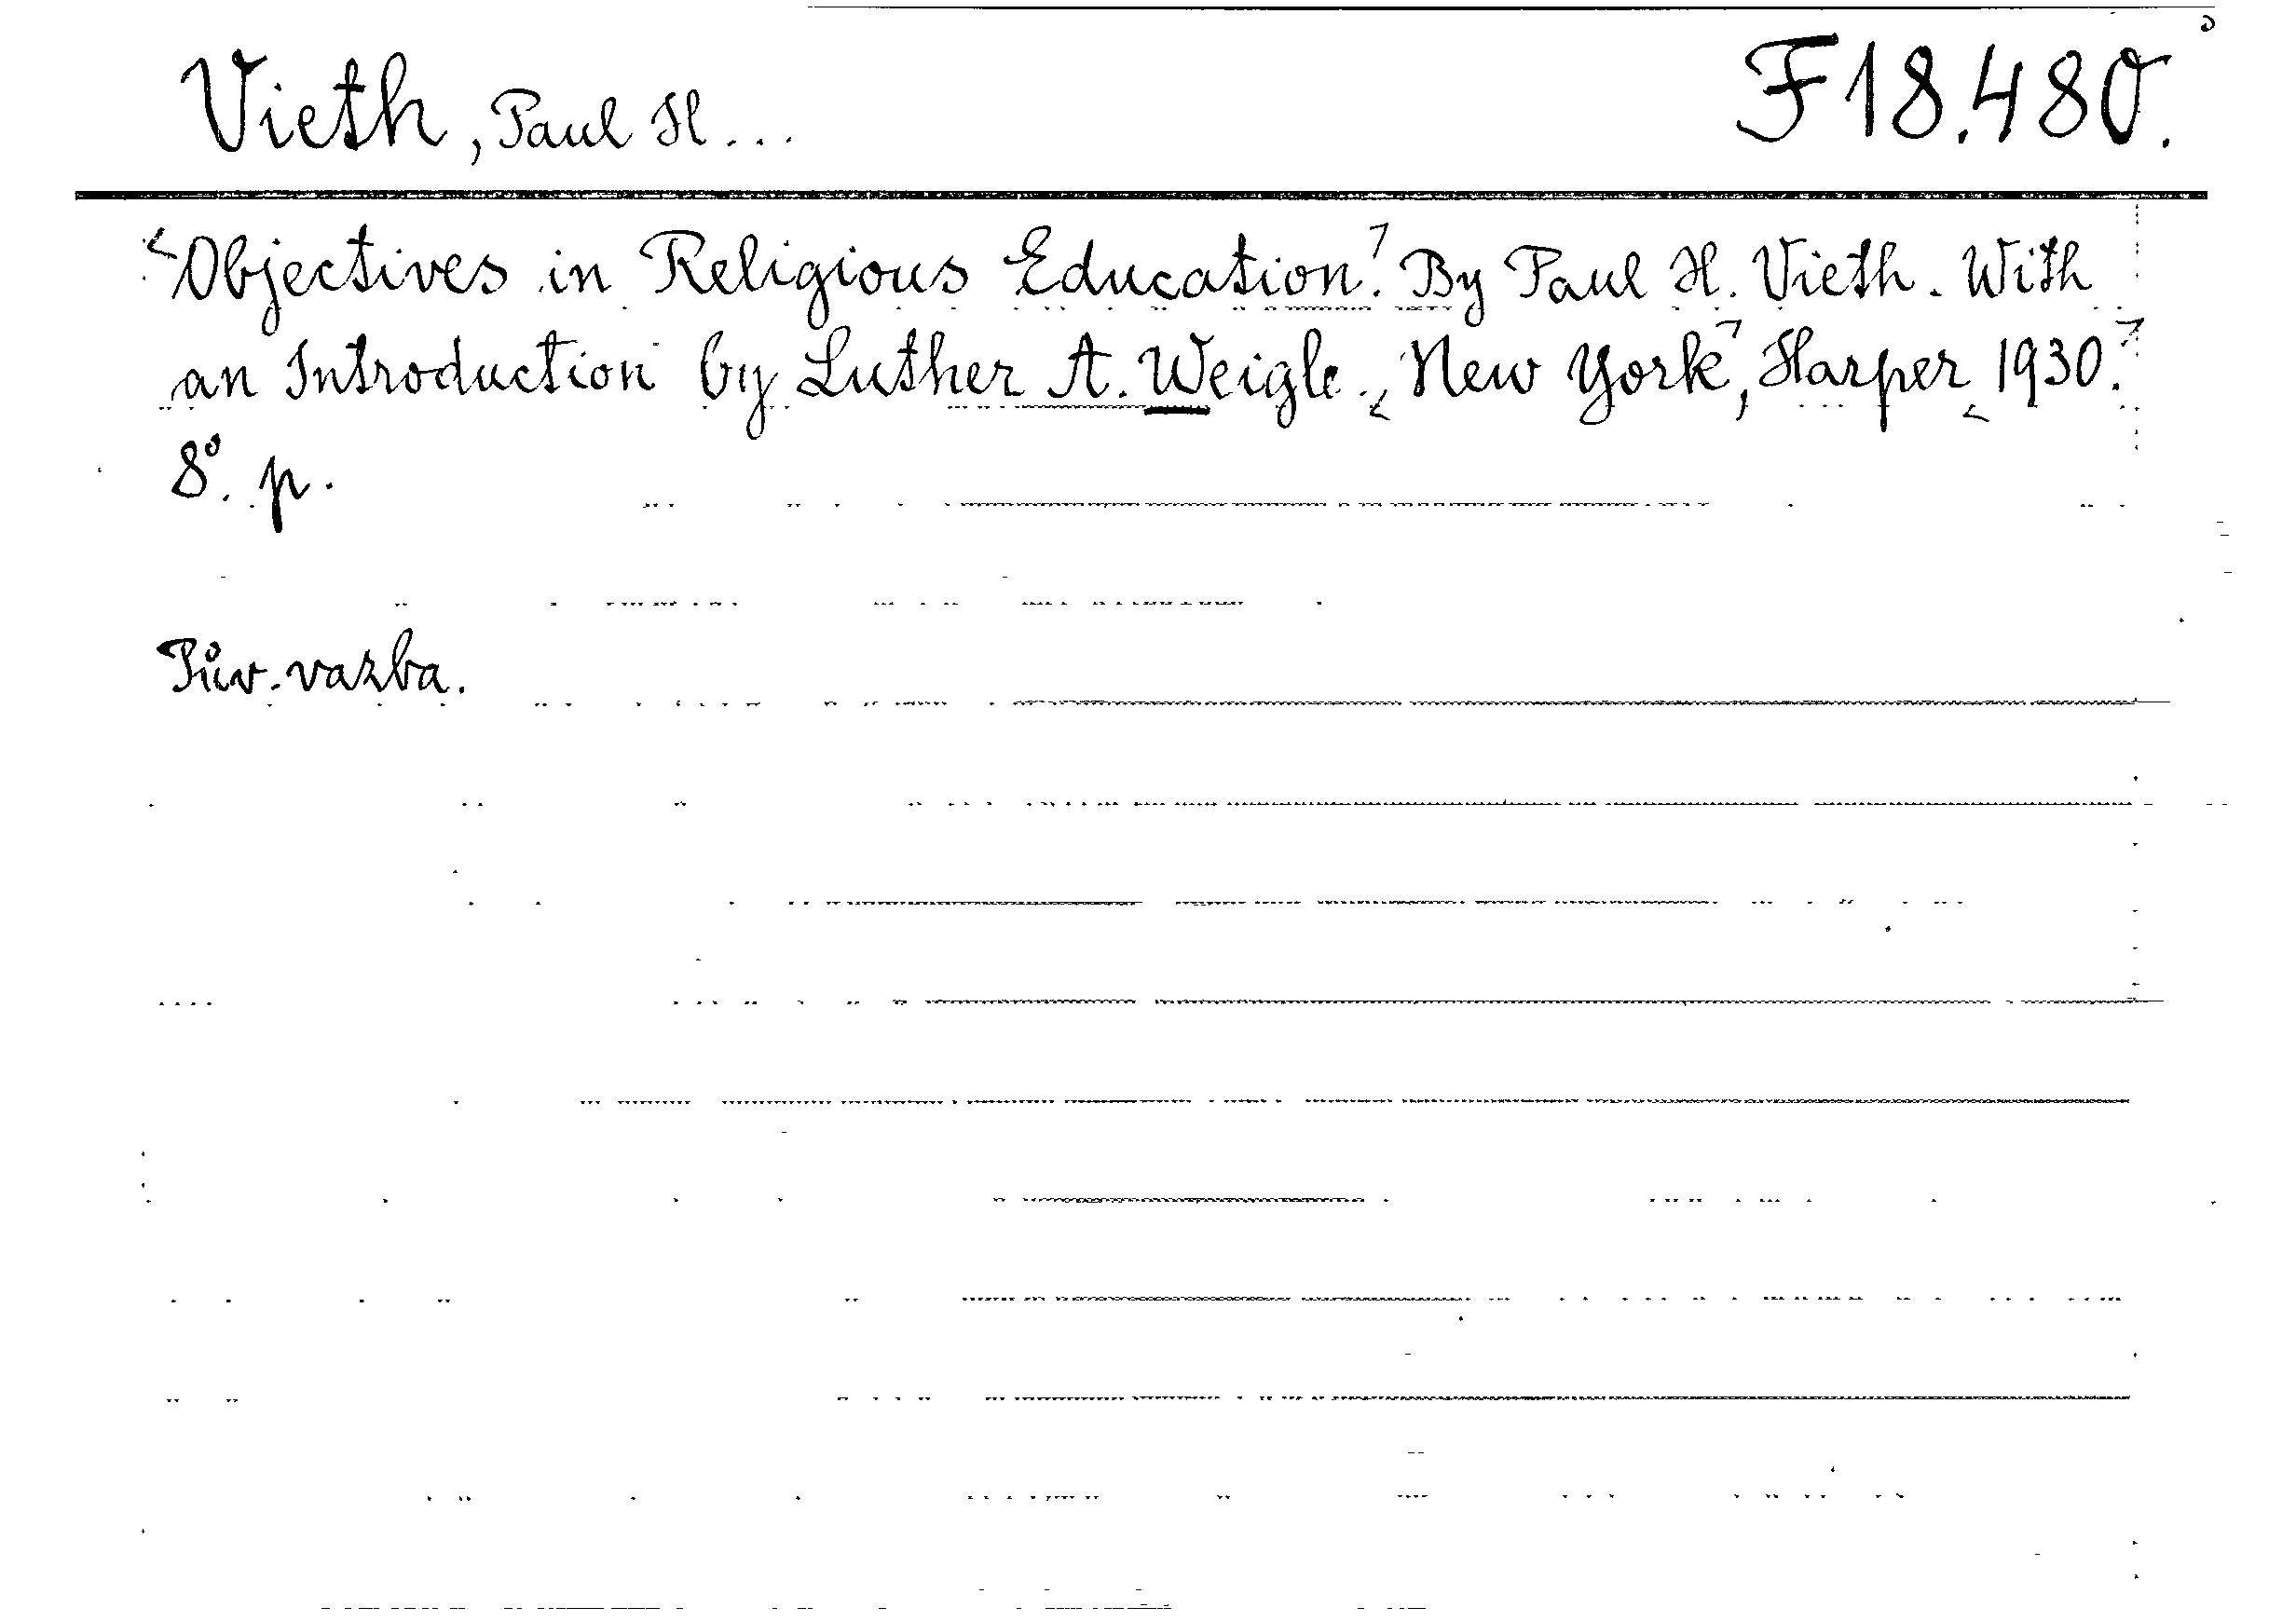 Vieth, Paul H... F 18.480.
Objectives in Religious Education. By Paul H. Vieth. With
an Introduction by Luther A. Weigle. New York, Harper 1930.
8°. p.
Pův. vazba.